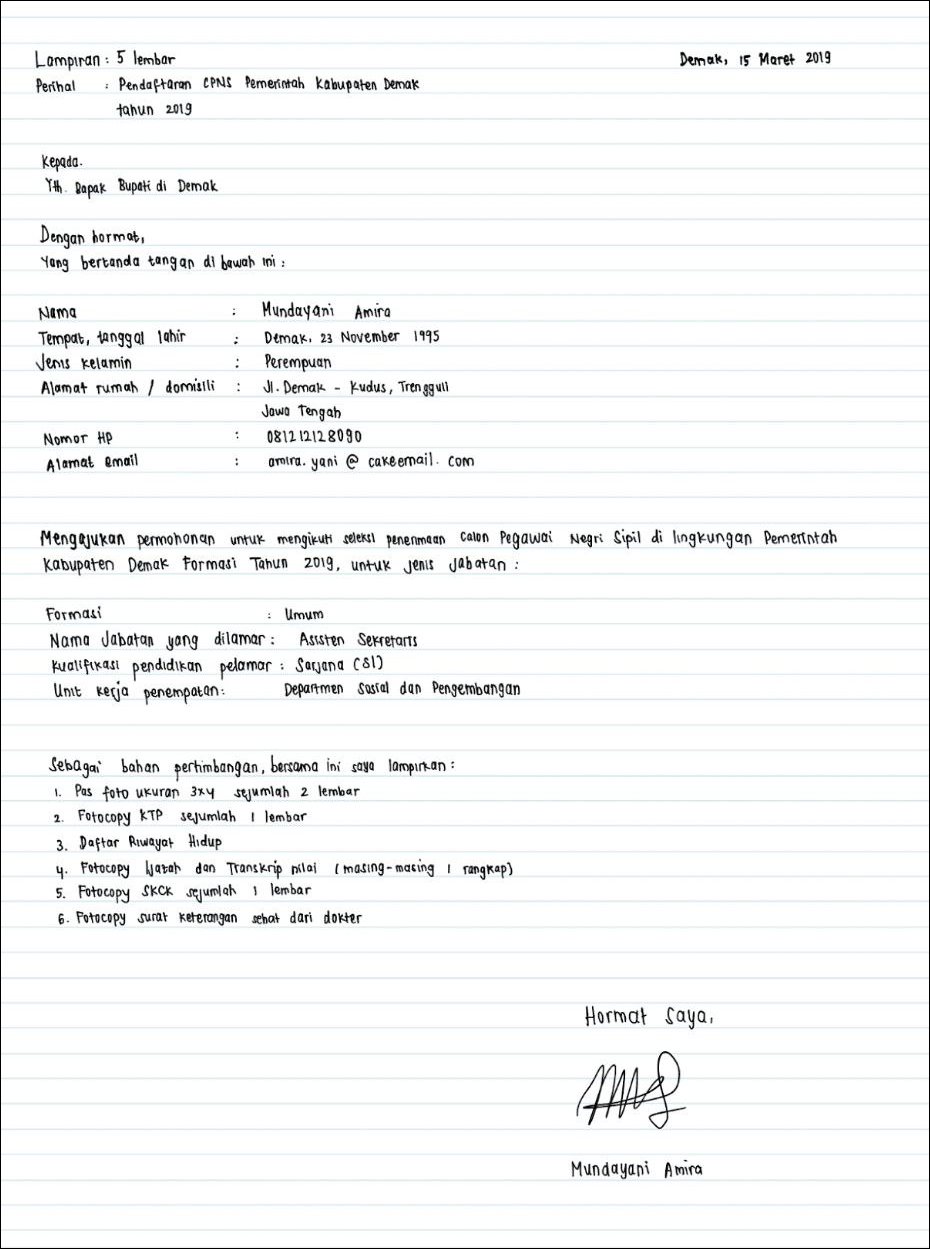 Lampiran : 5 lembar
Demak, 15 Maret 2019
Perihal : Pendaftaran CPNS Pemerintah Kabupaten Demak
tahun 2019
Kepada.
Yth. Bapak Bupati di Demak
Dengan hormat,
Yang bertanda tangan di bawah ini :
Nama : Mundayani Amira
Tempat, tanggal lahir : Demak, 23 November 1995
Jenis kelamin : Perempuan
Alamat rumah / domisili : Jl. Demak - Kudus, Trengguli
Jawa Tengah
Nomor HP : 081212128090
Alamat email : amira.yani @ cakeemail. com
Mengajukan permohonan untuk mengikuti seleksi penerimaan Calon Pegawai Negri Sipil di lingkungan Pemerintah
Kabupaten Demak Formasi Tahun 2019, untuk jenis jabatan :
Formasi : Umum
Nama Jabatan yang dilamar : Asisten Sekretaris
Kualifikasi pendidikan pelamar : Sarjana (S1)
Unit kerja penempatan: Departmen Sosial dan Pengembangan
Sebagai bahan pertimbangan, bersama ini saya lampirkan :
1. Pas foto ukuran 3x4 sejumlah 2 lembar
2. Fotocopy KTP sejumlah 1 lembar
3. Daftar Riwayat Hidup
4. Fotocopy Ijazah dan Transkrip nilai (masing-masing 1 rangkap)
5. Fotocopy SKCK sejumlah 1 lembar
6. Fotocopy surat keterangan sehat dari dokter
Hormat Saya,
Mundayani Amira